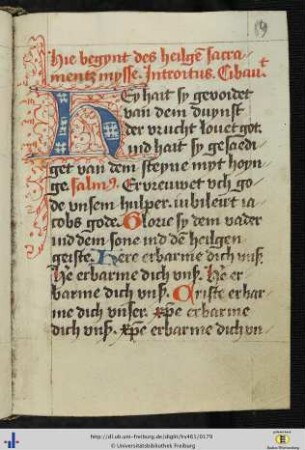 19
Hie begynt des heilgē sacra-
mentz mysse. Introitus. Cibauit
Ey hait sy gevoidet
van dem duynst
der vrucht louet got.
ind hait sy gesaedi
get van dem steyne myt hoyn-
ge. salm9. Ervreuwet vch go-
de vnsem hulper. iubileirt ia
cobs gode. Glorie sy dem vader
ind dem sone ind dē heilgen
geiste. Here erbarme dich vnß.
He erbarme dich vnß. He er
barme dich vnß. Criste erbar
me dich vnser. xp̄e erbarme
dich vnß. xp̄e erbarme dich vn
http://dl.ub.uni-freiburg.de/diglit/hs463/0179
© Universitätsbibliothek Freiburg